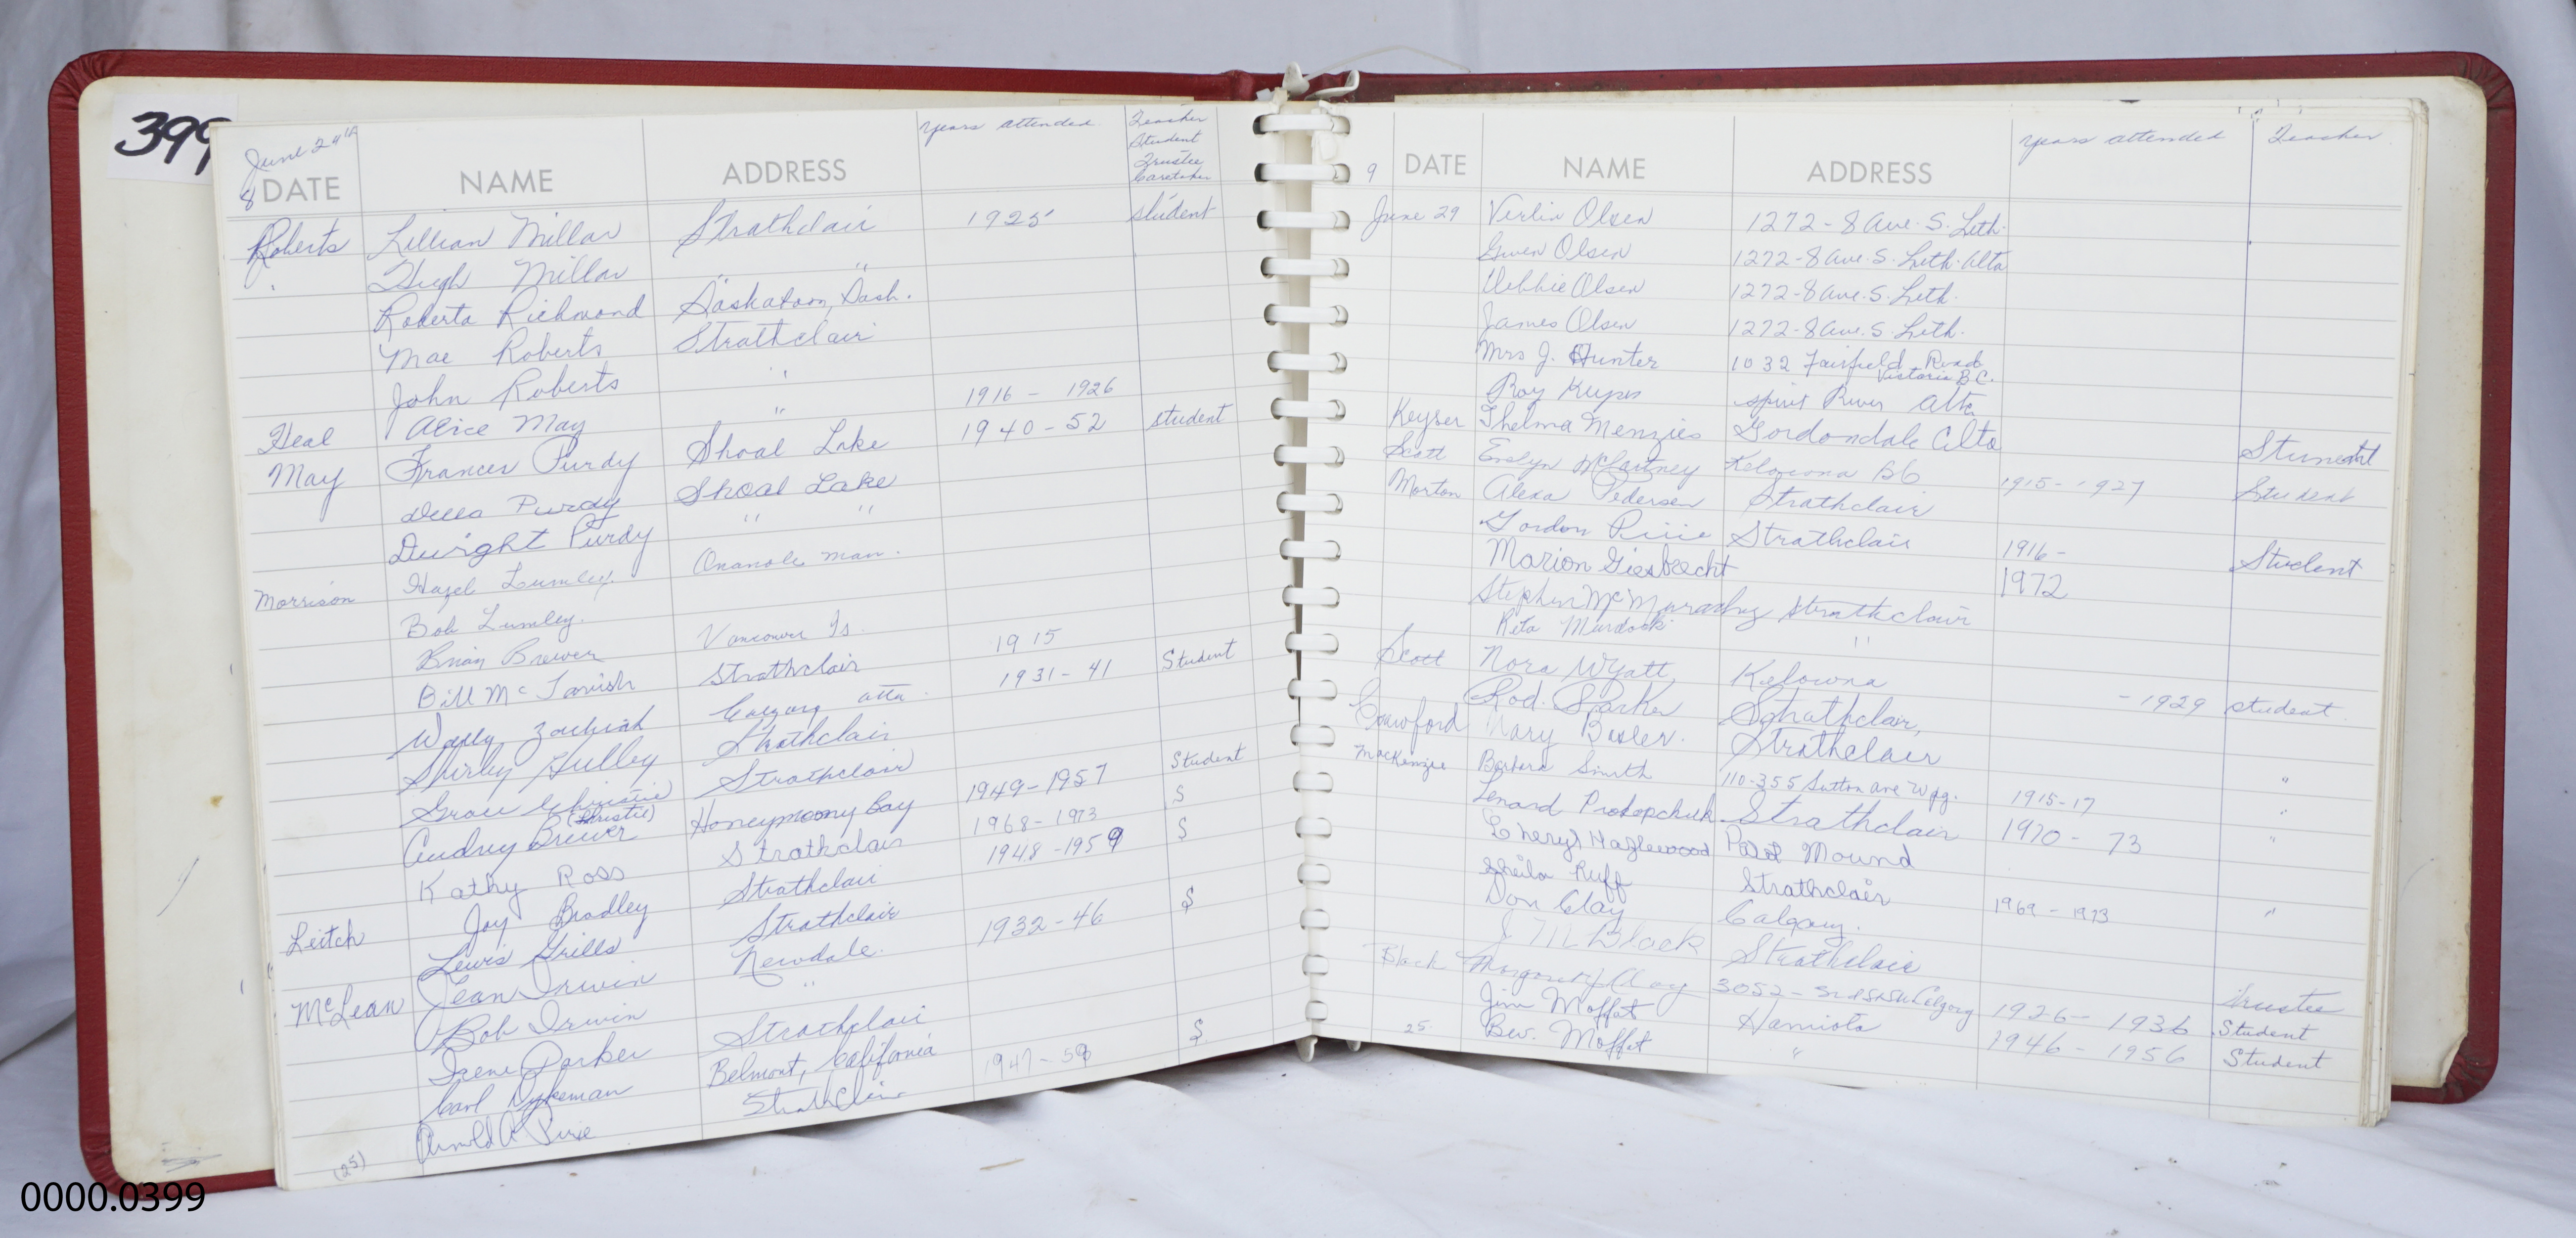 399
June 24th years attended Teacher
Student
Trustee
Caretaker
8 DATE NAME ADDRESS
Roberts Lillian Millar Strathclair 1925 student
Hugh Millar " "
Roberta Richmond Saskatoon, Sask.
Mae Roberts Strathclair
John Roberts " 1916 - 1926
Heal Alice May " 1940 - 52 student
May Frances Purdy Shoal Lake
Della Purdy Shoal Lake
Dwight Purdy " "
Morrison Hazel Lumley Onanole Man.
Bob Lumley.
Brian Brewer Vancouver Is. 1915
Bill McTavish Strathclair 1931 - 41 Student
Wally Calgary Alta.
Shirley Gulley Strathclair
Grace Christie Strathclair 1949-1957 Student
(Christie)
Audrey Brewer Honeymoon Bay 1968-1973 S
Kathy Ross Strathclair 1948-1959 S
Leitch Joy Bradley Strathclair
Lewis Grills Strathclair 1932-46 S
McLean Jean Irwin Newdale.
Bob Irwin "
Irene Parker Strathclair
Carl Dykeman Belmont, California 1947-59 S.
Arnold A Pirie Strathclair
(25)
years attended Teacher
9 DATE NAME ADDRESS
June 29 Verlin Olsen 1272-8 Ave. S. Leth.
Gwen Olsen 1272-8 Ave. S. Leth. Alta
Debbie Olsen 1272-8 Ave. S. Leth.
James Olsen 1272-8 Ave. S. Leth.
Mrs J. Hunter 1032 Fairfield Road
Victoria B.C.
Roy Spirit River Alta
Keyser Thelma Menzies Gordondale Alta
Scott Evelyn McCartney Kelowna BC 1915-1927 Student
Morton Alexa Pedersen Strathclair Student
Gordon Pirie Strathclair 1916-
Marion Giesbrecht 1972 Student
Stephen Strathclair
Rita Murdock "
Scott Nora Wyatt Kelowna
Rod. Parker Strathclair, - 1929 student
Crawford Mary Strathclair
MacKenzie Barbara Smith 110-355 Sutton Ave Wpg. 1915-17 "
Lenard Prokopchuk Strathclair 1970 - 73 "
Cheryl Hazlewood Pilot Mound "
Sheila Ruff Strathclair 1969 - 1973 "
Don Clay Calgary.
J M Black Strathclair Trustee
Black Margaret Clay 3052 - Calgary 1926 - 1936 Student
Jim Moffat Hamiota 1946 - 1956 Student
25. Bev. Moffat "
0000.0399